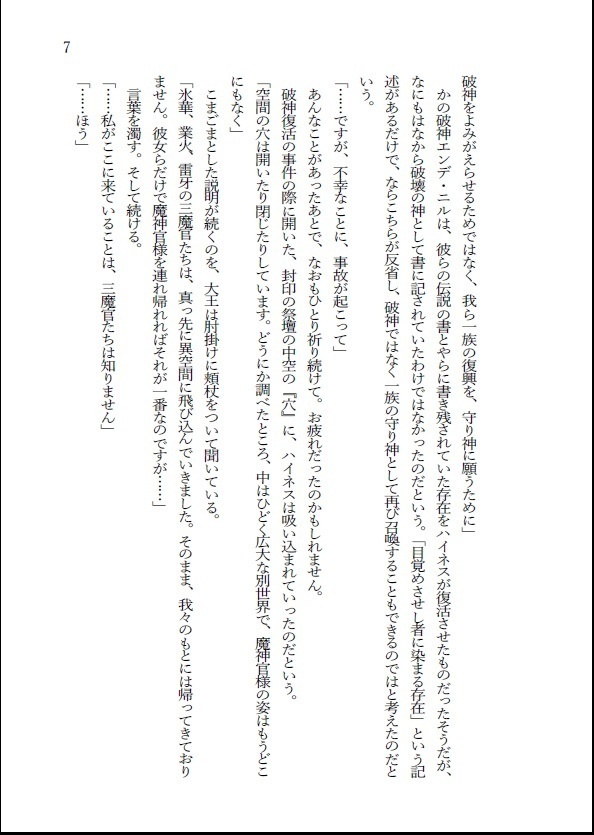 7
破神をよみがえらせるためではなく、我ら一族の復興を、守り神に願うために」
かの破神エンデ・ニルは、彼らの伝説の書とやらに書き残されていた存在をハイネスが復活させたものだったそうだが、
なにもはなから破壊の神として書に記されていたわけではなかったのだという。「目覚めさせし者に染まる存在」という記
述があるだけで、ならこちらが反省し、破神ではなく一族の守り神として再び召喚することもできるのではと考えたのだと
いう。
「……ですが、不幸なことに、事故が起こって」
あんなことがあったあとで、なおもひとり祈り続けて。お疲れだったのかもしれません。
破神復活の事件の際に開いた、封印の祭壇の中空の『穴』に、ハイネスは吸い込まれていったのだという。
「空間の穴は開いたり閉じたりしています。どうにか調べたところ、中はひどく広大な別世界で、魔神官様の姿はもうどこ
にもなく」
こまごまとした説明が続くのを、大王は肘掛けに頬杖をついて聞いている。
「氷華、業火、雷牙の三魔官たちは、真っ先に異空間に飛び込んでいきました。そのまま、我々のもとには帰ってきており
ません。彼女らだけで魔神官様を連れ帰れればそれが一番なのですが……」
言葉を濁す。そして続ける。
「……私がここに来ていることは、三魔官たちは知りません」
「……ほう」